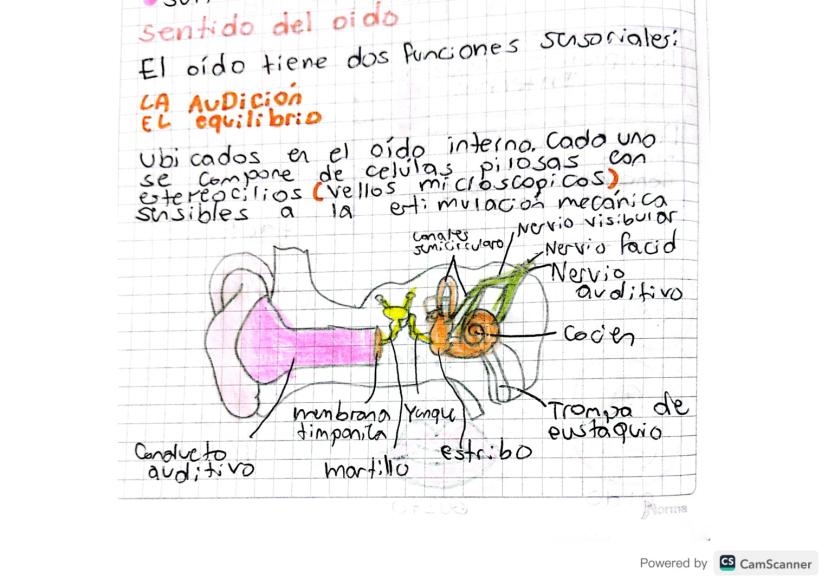 sentido del oido
El oído tiene dos funciones sensoriales:
LA AUDición
EL equilibrio
Ubicados en el oído interno. Cado uno
se compone de celulas pilosas con
estereocilios (vellos microscopicos)
sensibles a la estimulación mecánica
canales
semicirculare
Nervio visibular
Nervio facid
Nervio
auditivo
Cocien
Trompa de
eustaquio
menbrana
timponica
Yunque
martillo
estribo
Conducto
auditivo
Norma
Powered by CS CamScanner